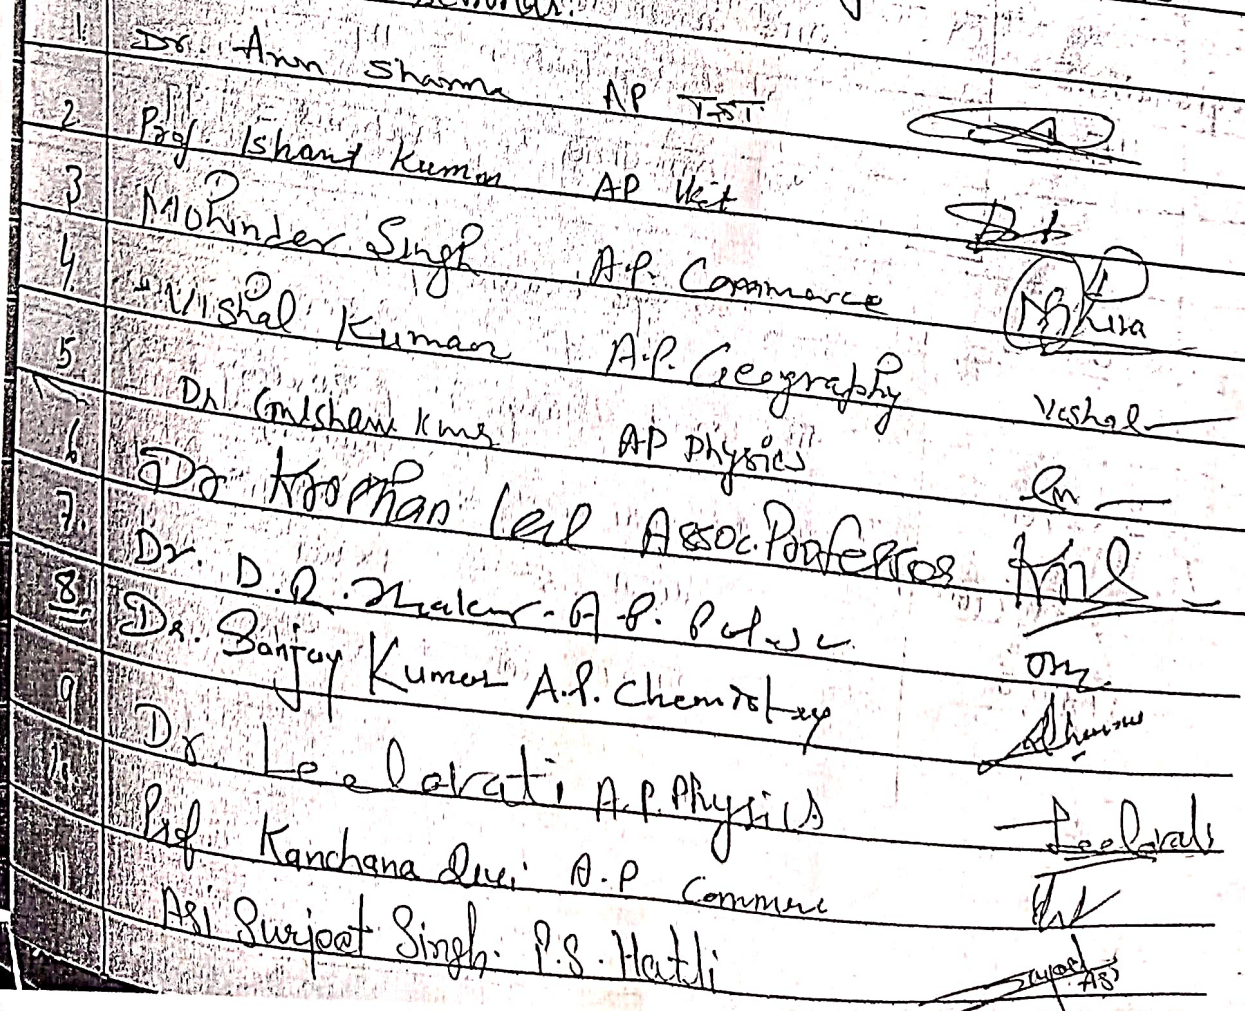 1.
Dr. Anm Sharma AP
2 Prof. Ishant Kumar AP
3 Mohinder Singh A.P. Commerce
4 Vishal Kumar A.P. Geography Vishal
5 Dr Gulshan Kmr AP Physics
6 Dr Krophan Lal Assoc. Ponfessos
7. Dr. D.R. Thakur. A.P. Pol. Sc
8. Dr. Sanjay Kumar A.P. Chemistry
9 Dr. Leelavati A.P. Physics Leelavati
Prof. Kanchana Devi A.P Commerce
11 ASI Surjeet Singh. P.S. Hatli